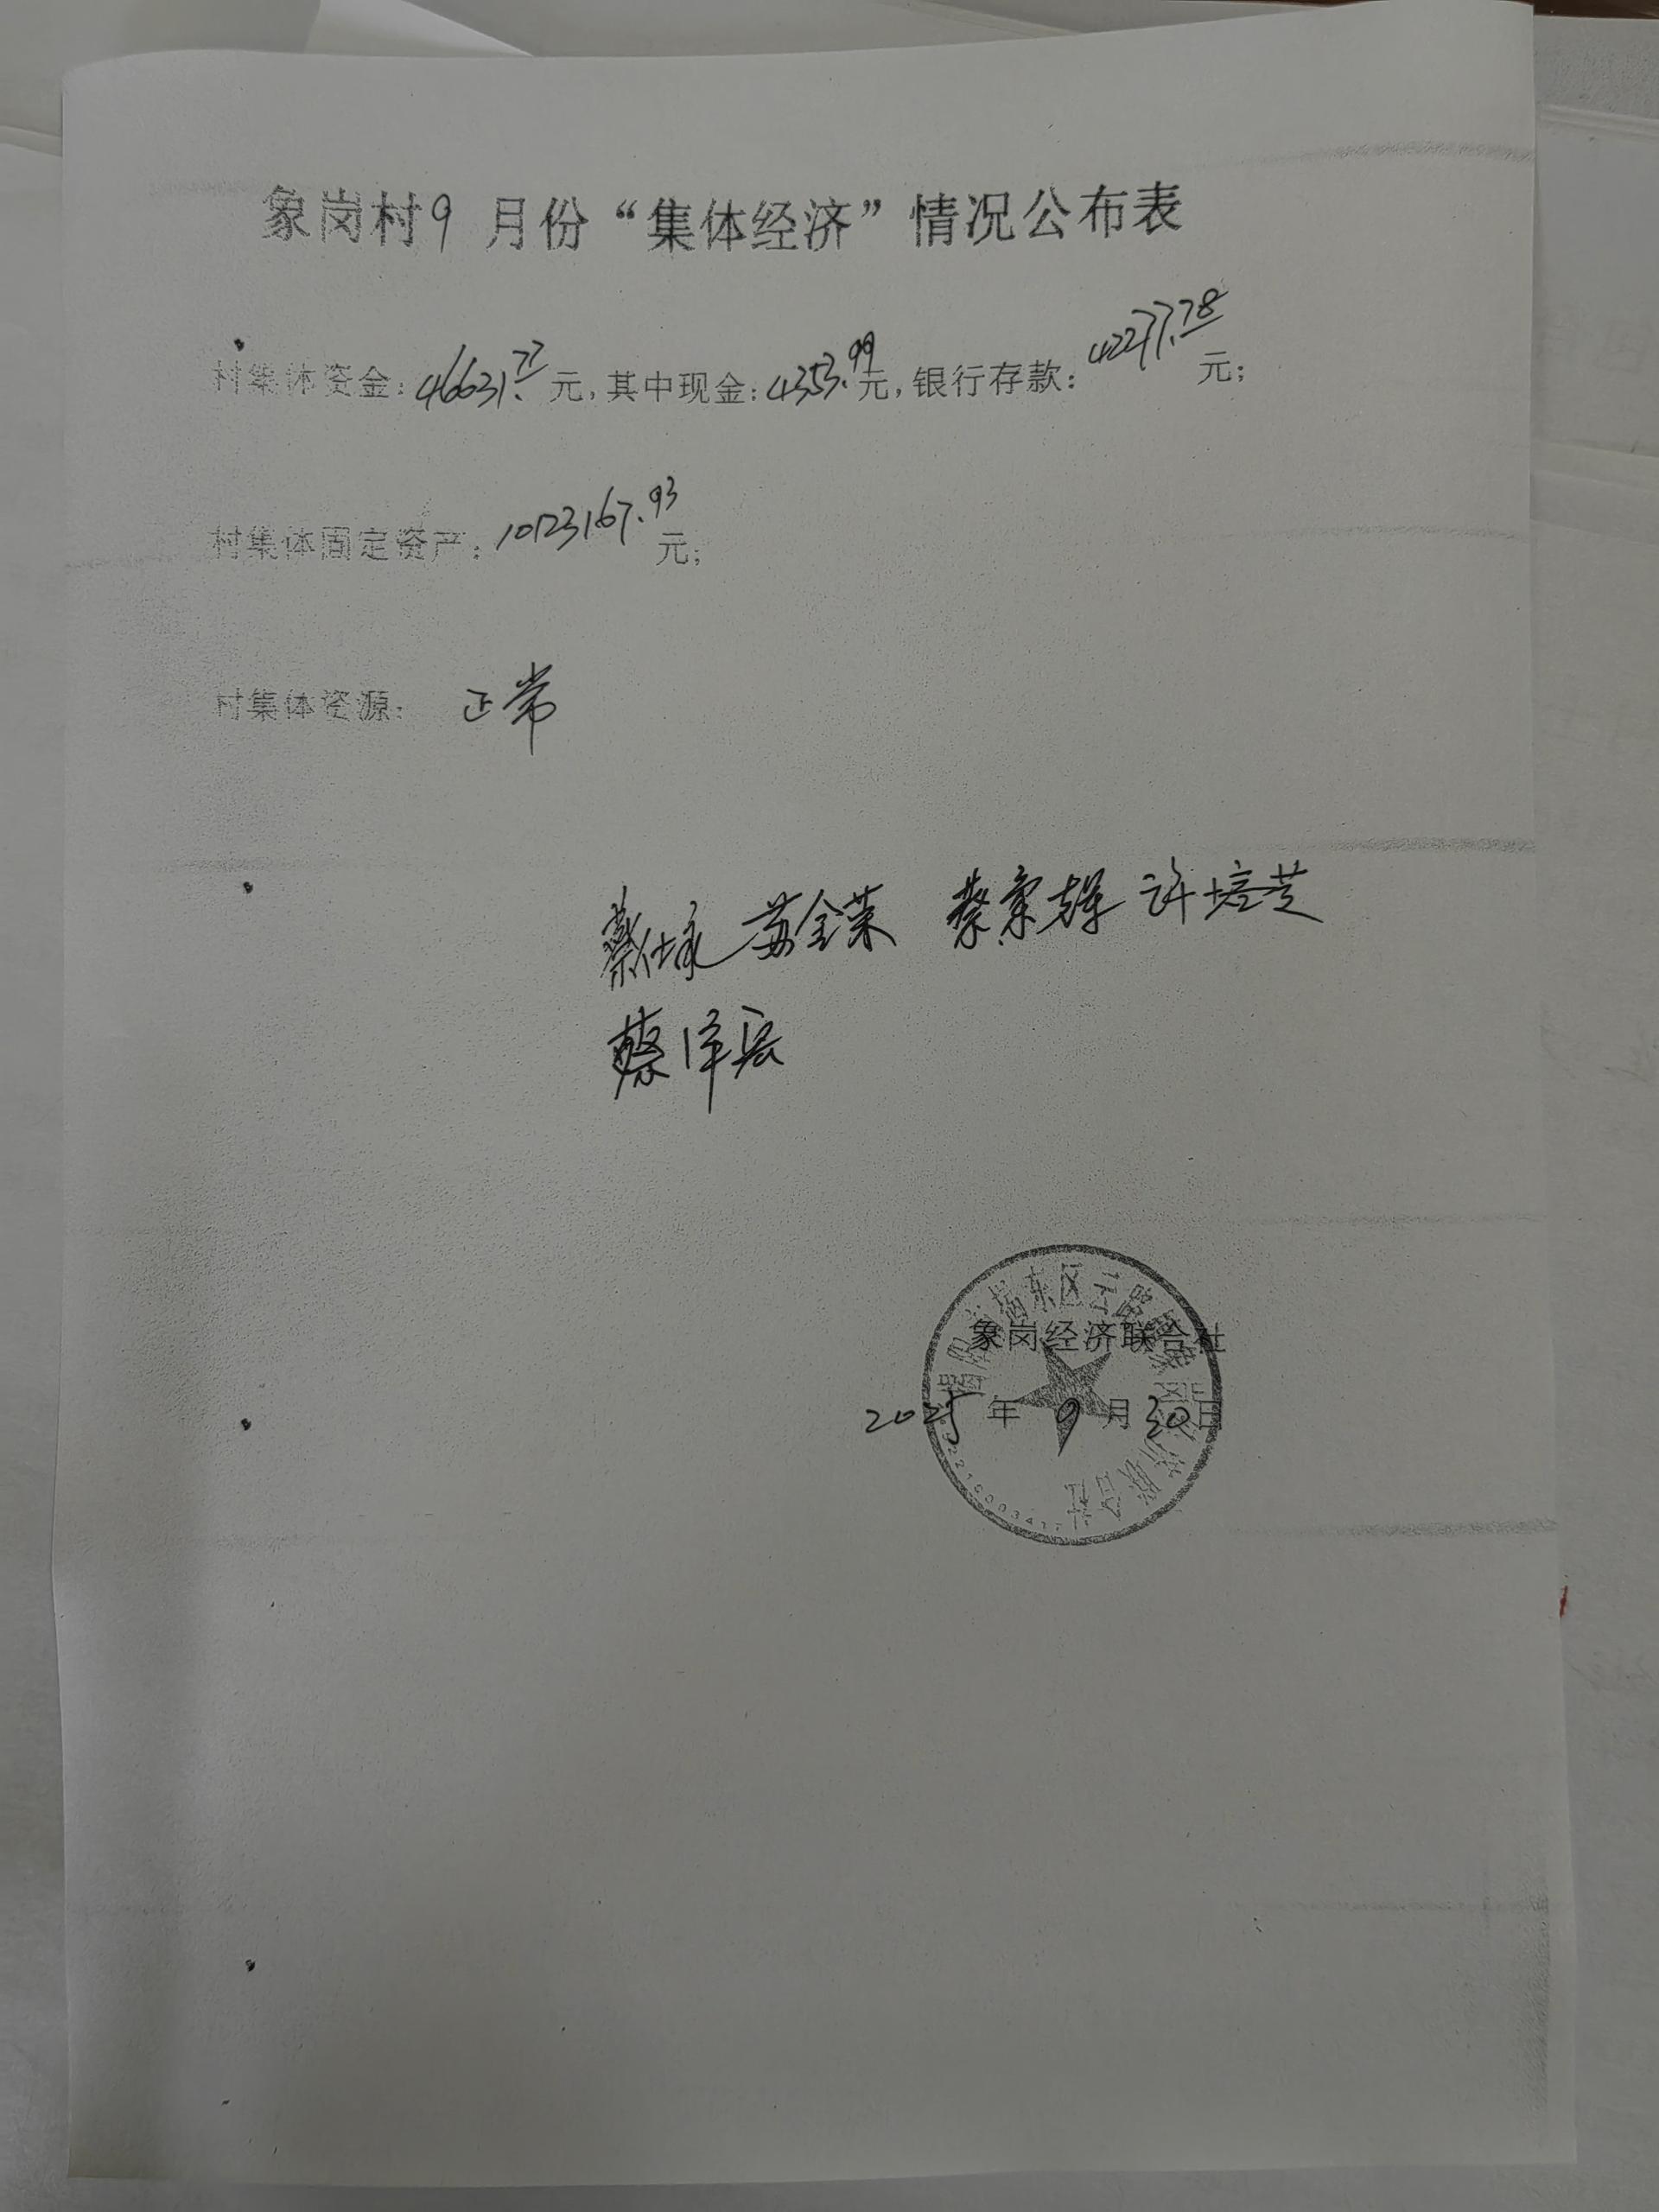 象岗村9月份“集体经济”情况公布表
村集体资金：46631.77元，其中现金：4353.99元，银行存款：42277.78元；
村集体固定资产：10123167.93元；
村集体资源：正常
苏全荣 许培芝
象岗经济联合社
2025年9月30日